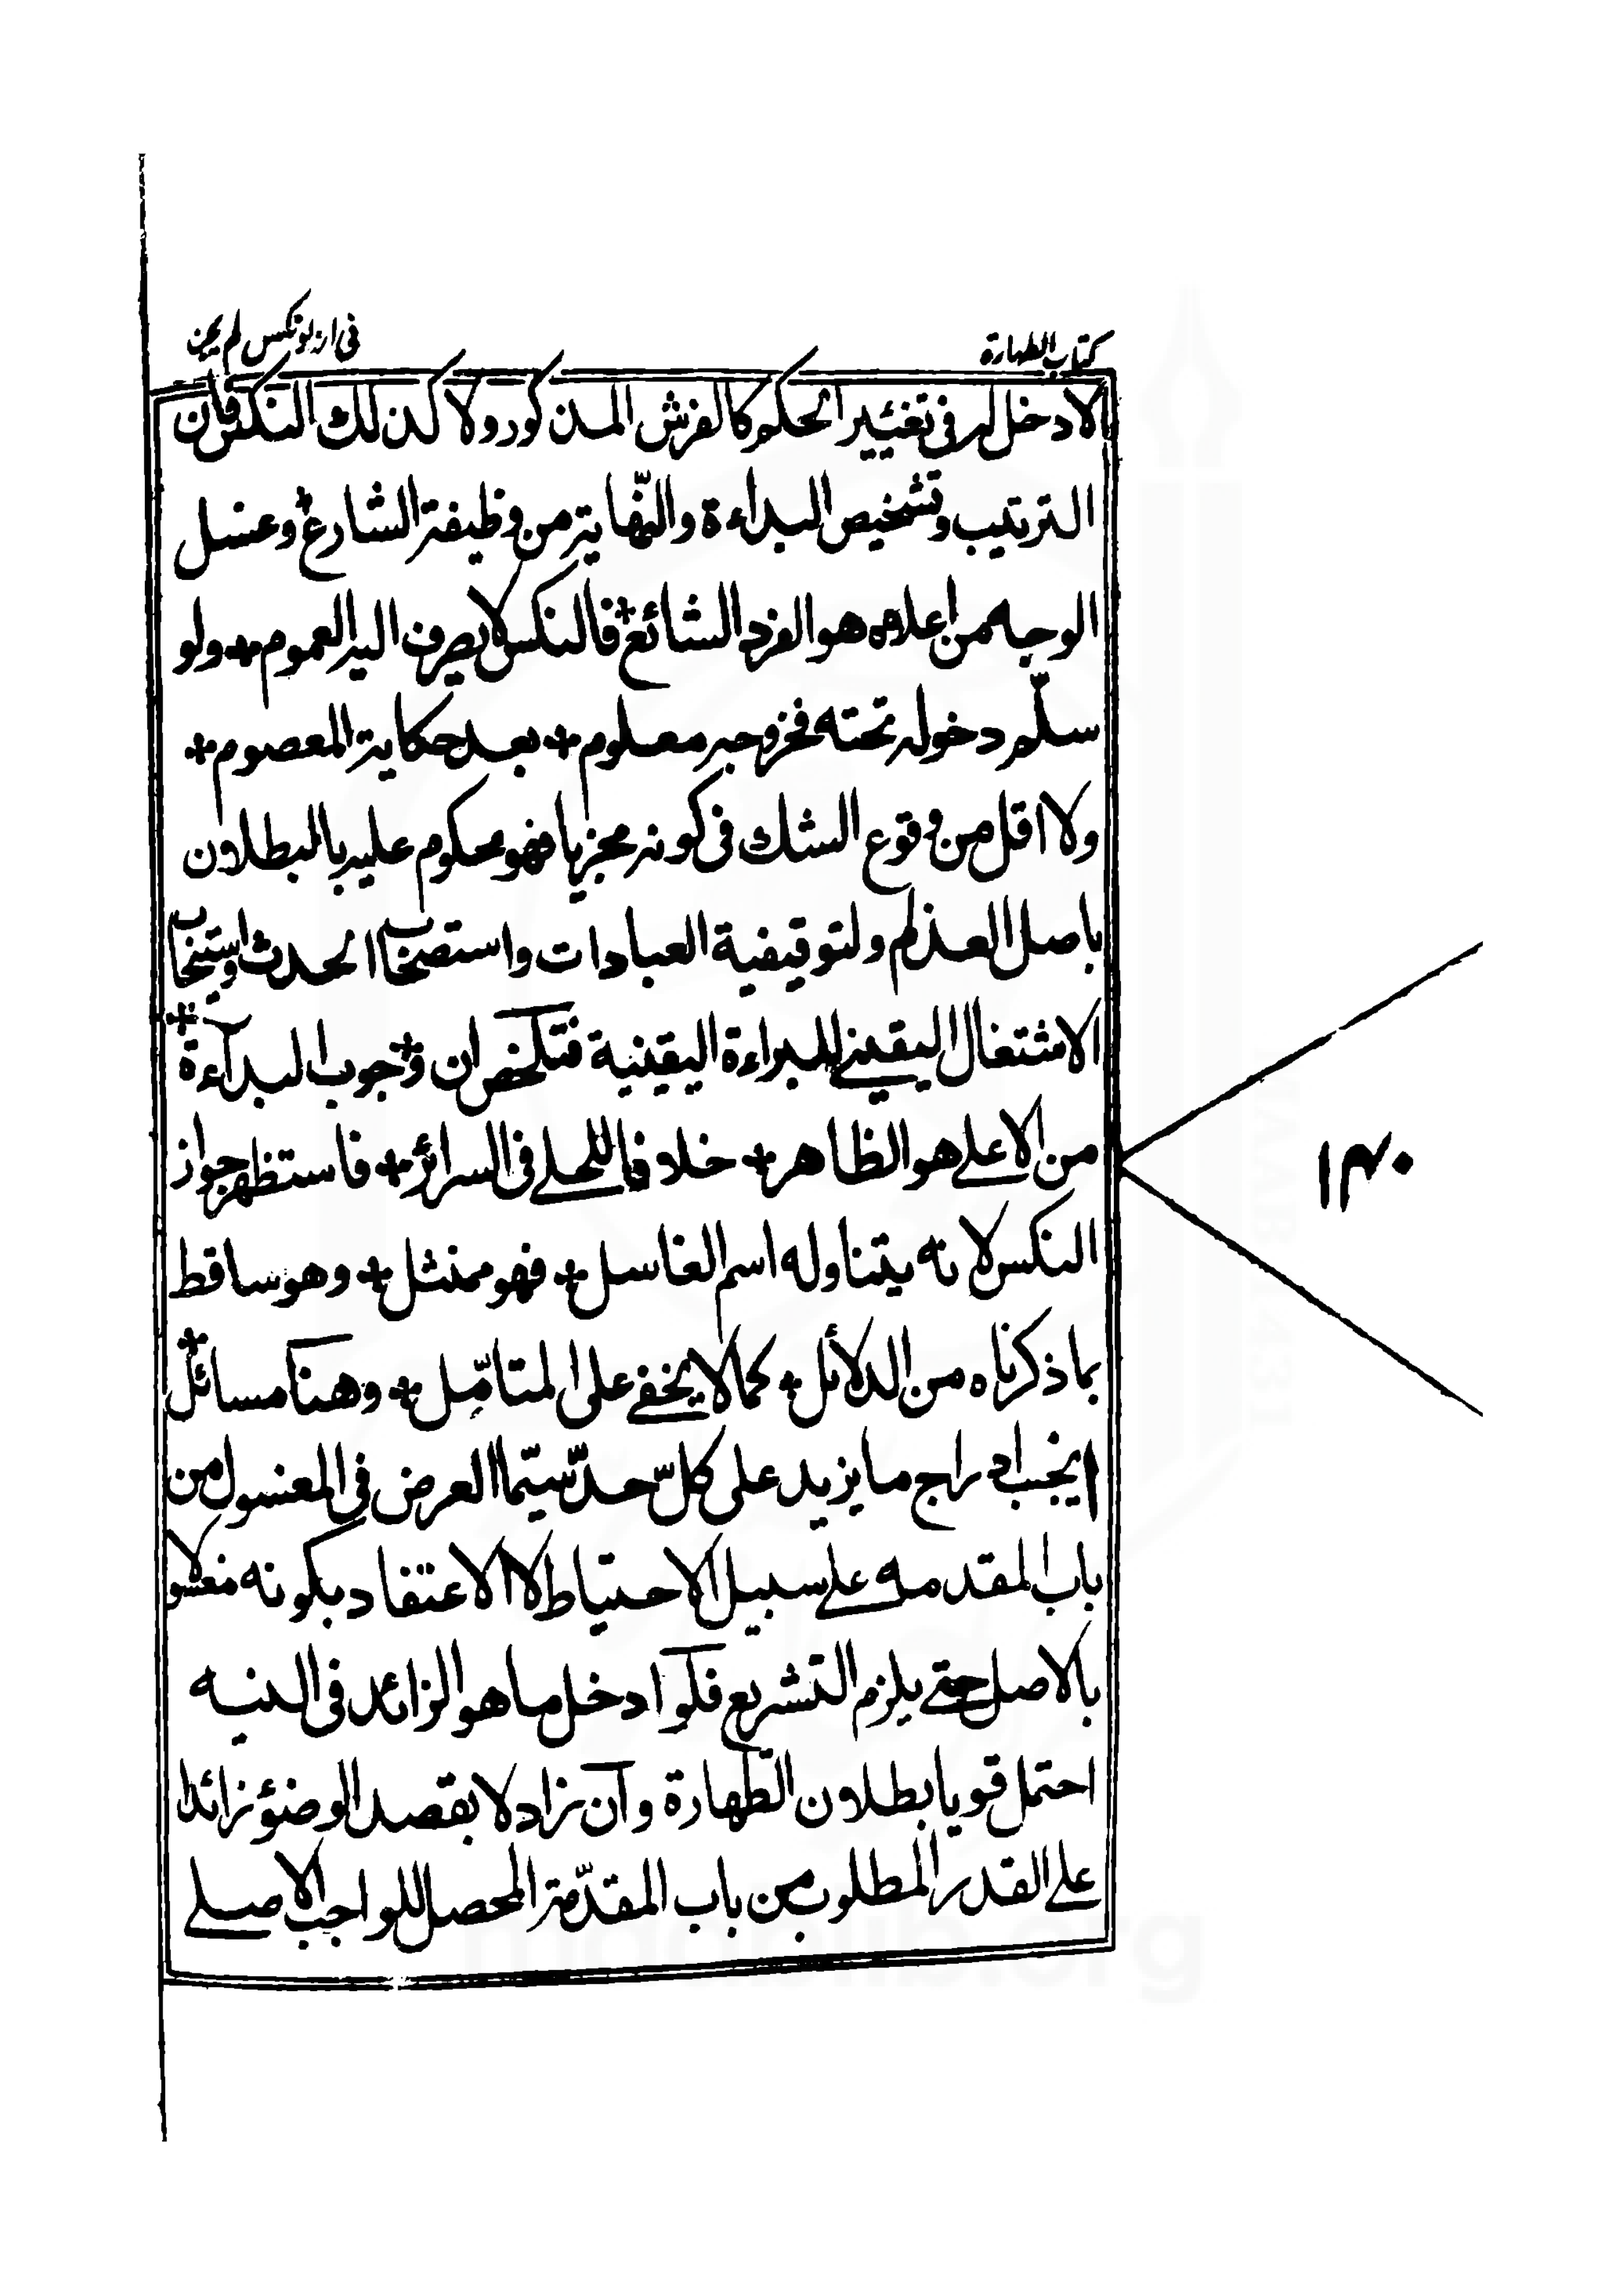 كتاب الطهارة
في انه لو نكس لم يجز
الادخل له في تغيير الحكم كالفرش المذكور ولا كذلك النكس فان
الترتيب وتشخيص البداءة والنّهاية من وظيفة الشارع + وغسل
الوجه من اعلاه هو الفرد الشائع + فالنكس لا يصرف اليه العموم + ولو
سلّم دخوله تحته فخروجه معلوم + بعد حكاية المعصوم +
ولا اقل من وقوع الشك في كونه مجزيا فهو محكوم عليه بالبطلان
باصل العدم ولتوقيفية العبادات واستصحاب الحدث واستصحاب
الاشتغال اليقيني للبراءة اليقينية فتلخص ان وجوب البدآءة +
من الاعلى هو الظاهر + خلافا للحلي في السرائر + فاستظهر جواز
النكس لانه يتناوله اسم الغاسل + فهو ممتثل + وهو ساقط
بما ذكرناه من الدلائل + كما لا يخفى على المتامّل + وهنا مسائل +
ا يجب ادراج ما يزيد على كلّ حدّ سيّما العرض في المغسول من
باب المقدمه على سبيل الاحتياط لا الاعتقاد بكونه مغسولا
بالاصل حتى يلزم التشريع فلو ادخل ما هو الزائد في النيه
احتمل قويا بطلان الطهارة وان زاد لا بقصد الوضوء زائدا
على القدر المطلوب من باب المقدّمة المحصل للواجب الاصلي
١٣٠